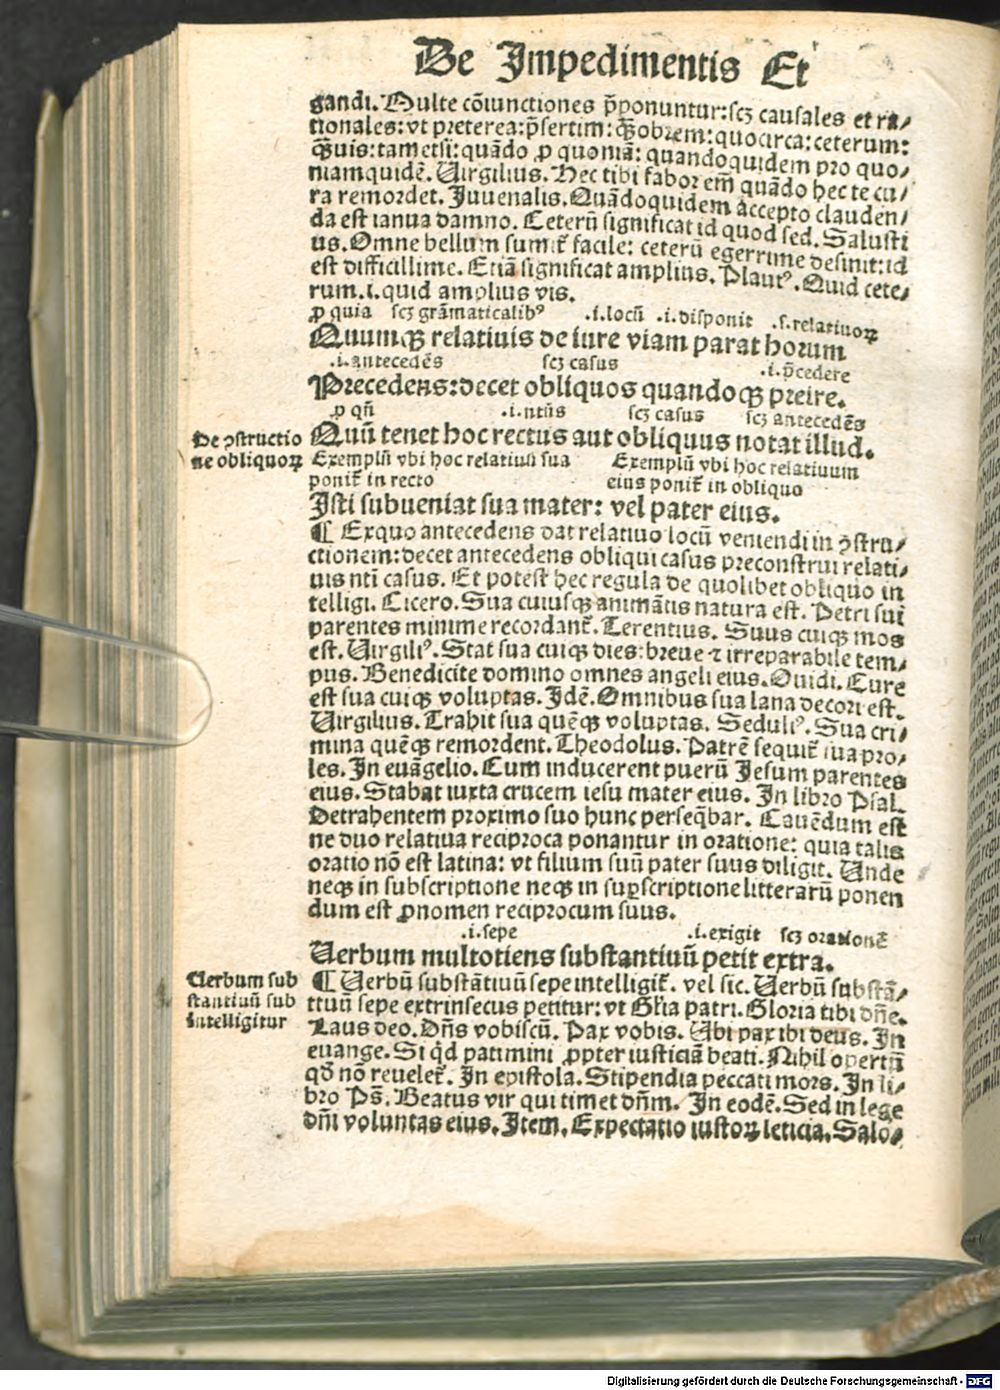 De Impedimentis Et
gandi. Multe cōiunctiones p̄ponuntur: scꝫ causales et ra⸗
tionales: vt preterea: p̄sertim: ꝙ̄obrem: quocirca: ceterum:
ꝙ̄uis: tametsi: quādo ꝓ quoniā: quandoquidem pro quo⸗
niamquidē. Uirgilius. Hec tibi fabor em̄ quādo hec te cu⸗
ra remordet. Juuenalis. Quādoquidem accepto clauden⸗
da est ianua damno. Ceterū significat id quod sed. Salusti
us. Omne bellum sumit̄ facile: ceterū egerrime desinit: id
est difficillime. Etiā significat amplius. Plautꝰ. Quid cete⸗
rum .i. quid amplius vis.
ꝓ quia scꝫ grāmaticalibꝰ .i. locū .i. disponit .s. relatiuoꝝ
Quumqꝫ relatiuis de iure viam parat horum
.i. antecedēs scꝫ casus .i. p̄cedere
Precedens: decet obliquos quandoqꝫ preire.
ꝓ qn̄ .i. ntūs scꝫ casus scꝫ antecedēs
De ꝯstructio
ne obliquoꝝ
Quū tenet hoc rectus aut obliquus notat illud.
Exemplū vbi hoc relatiuū sua Exemplū vbi hoc relatiuum
ponit̄ in recto eius ponit̄ in obliquo
Isti subueniat sua mater: vel pater eius.
¶ Exquo antecedens dat relatiuo locū veniendi in ꝯstru⸗
ctionem: decet antecedens obliqui casus preconstrui relati⸗
uis nti casus. Et potest hec regula de quolibet obliquo in
telligi. Cicero. Sua cuiusqꝫ animātis natura est. Petri sui
parentes minime recordant̄. Terentius. Suus cuiqꝫ mos
est. Uirgiliꝰ. Stat sua cuiqꝫ dies: breue ⁊ irreparabile tem⸗
pus. Benedicite domino omnes angeli eius. Ouidi. Cure
est sua cuiqꝫ voluptas. Idē. Omnibus sua lana decori est.
Uirgilius. Trahit sua quēqꝫ voluptas. Seduliꝰ. Sua cri⸗
mina quēqꝫ remordent. Theodolus. Patrē sequit̄ sua pro⸗
les. In euāgelio. Cum inducerent puerū Jesum parentes
eius. Stabat iuxta crucem iesu mater eius. In libro Psal.
Detrahentem proximo suo hunc perseq̄bar. Cauēdum est
ne duo relatiua reciproca ponantur in oratione: quia talis
oratio nō est latina: vt filium suū pater suus diligit. Unde
neqꝫ in subscriptione neqꝫ in suꝑscriptione litterarū ponen
dum est ꝓnomen reciprocum suus.
.i. sepe .i. exigit scꝫ orationē
Uerbum multotiens substantiuū petit extra.
Uerbum sub
stantiuū sub
intelligitur
¶ Uerbū substātiuū sepe intelligit̄. vel sic. Uerbū substā⸗
tiuū sepe extrinsecus petitur: vt Gl̄ia patri. Gloria tibi dn̄e.
Laus deo. Dn̄s vobiscū. Pax vobis. Ubi pax ibi deus. In
euange. Si qd̄ patimini ꝓpter iusticiā beati. Nihil opertū
qd̄ nō reuelet̄. In epistola. Stipendia peccati mors. In li⸗
bro Ps̄. Beatus vir qui timet dn̄m. In eodē. Sed in lege
dn̄i voluntas eius. Item. Expectatio iustoꝝ leticia. Salo⸗
Digitalisierung gefördert durch die Deutsche Forschungsgemeinschaft - DFG